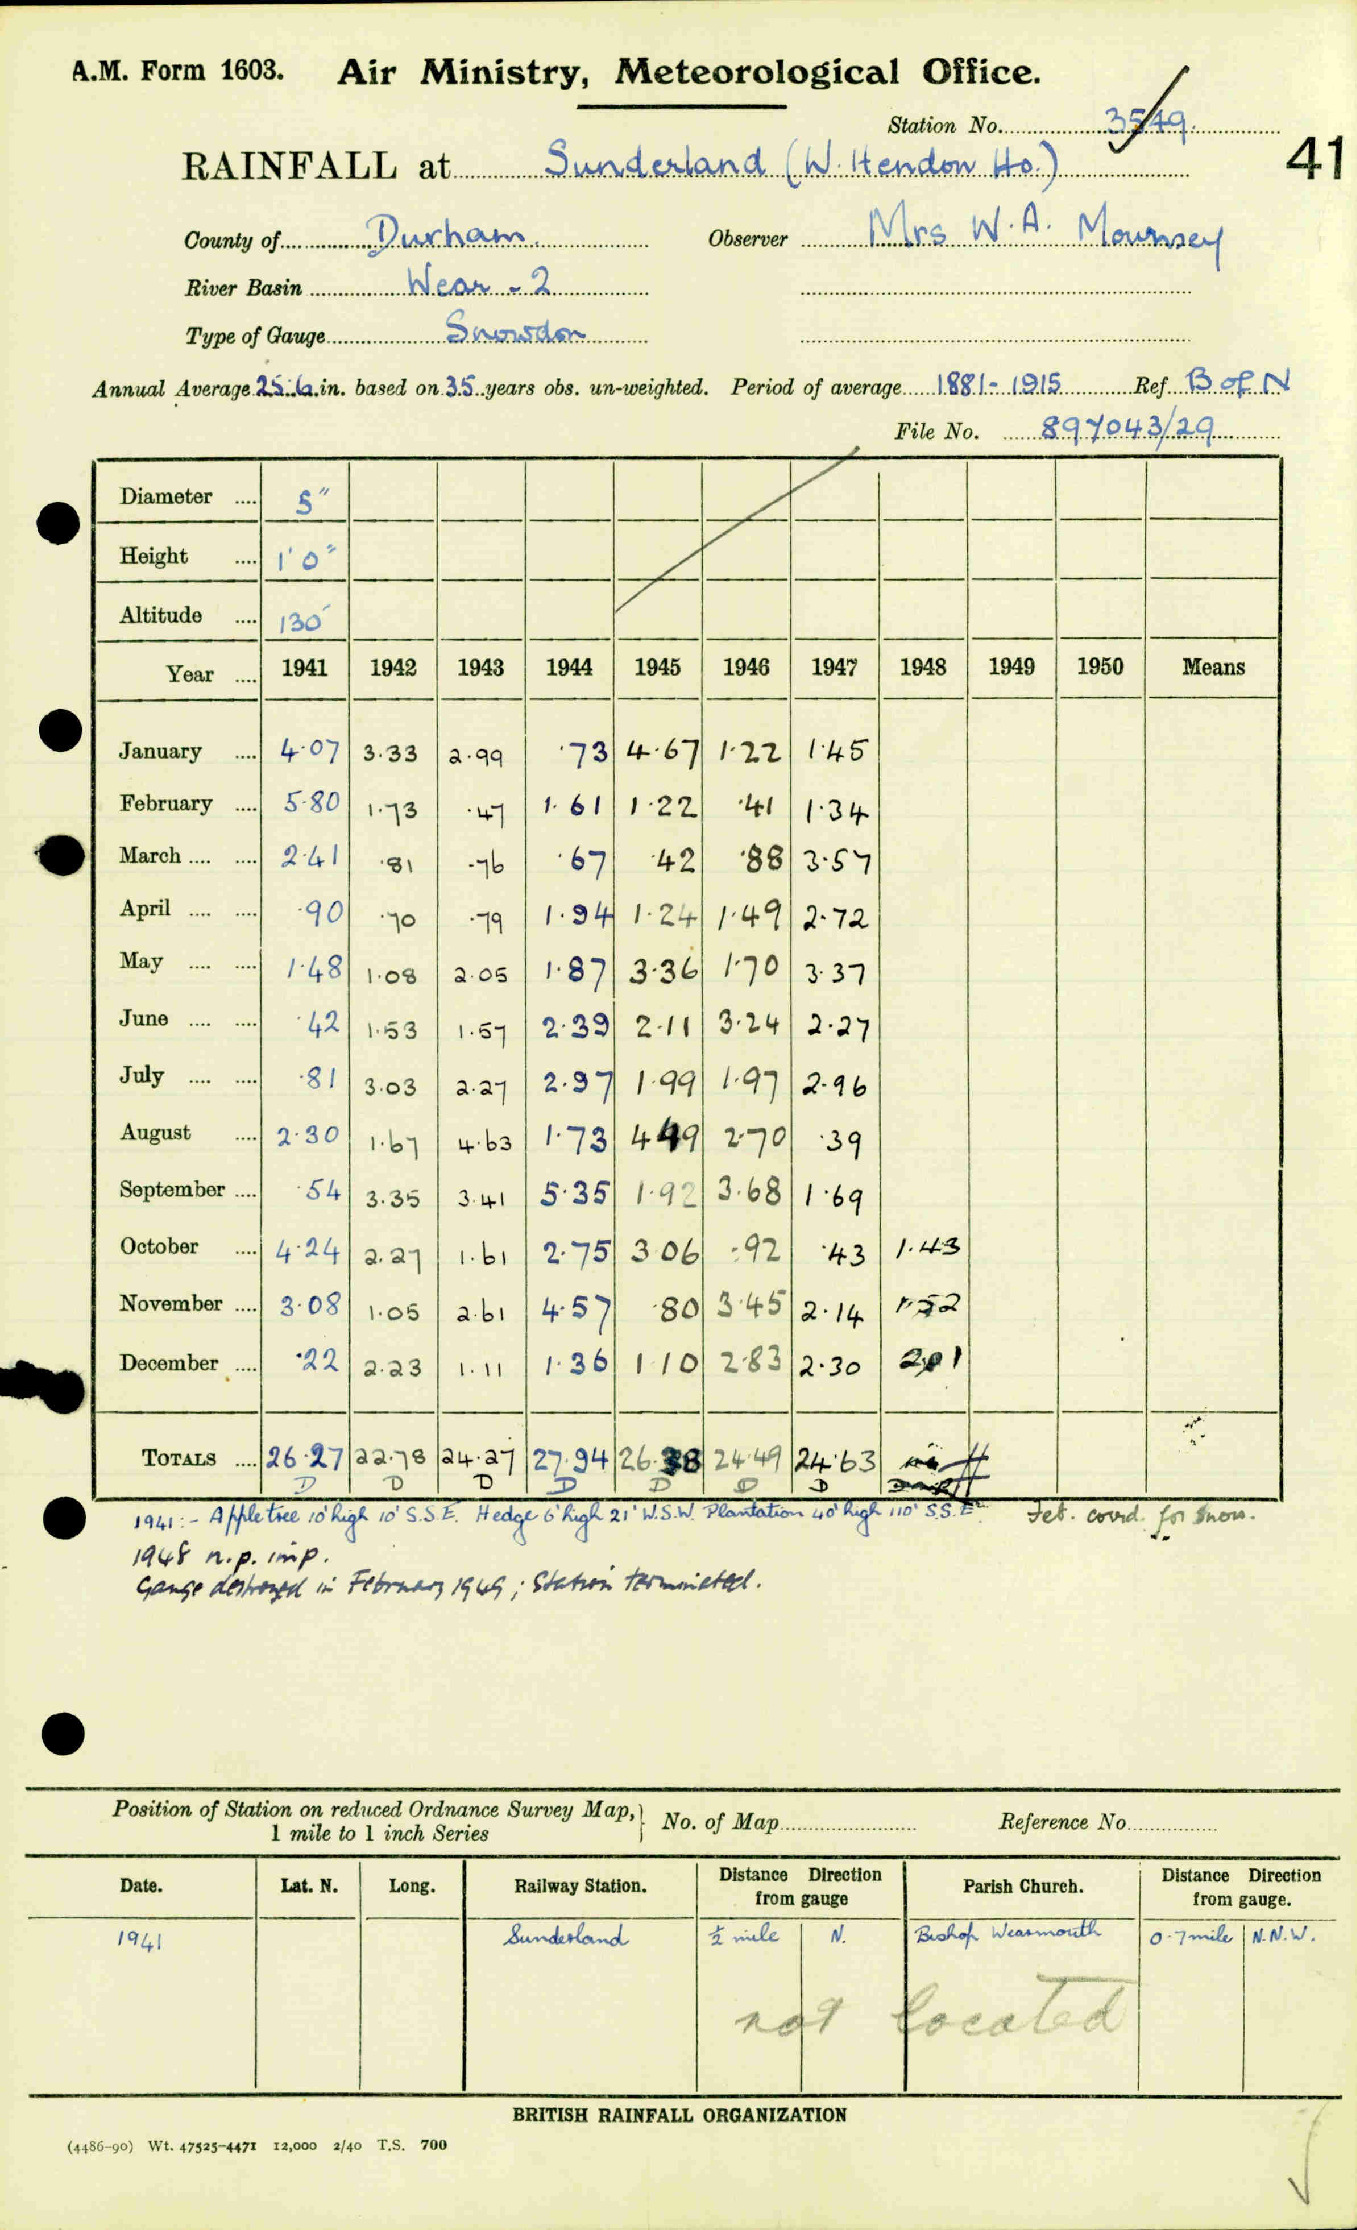 A.M. Form 1603. Air Ministry, Meteorological Office.
Station No. 3549.
RAINFALL at Sunderland (W. Hendon Ho.) 41
County of Durham. Observer Mrs W.A. Mounsey
River Basin Wear - 2
Type of Gauge Snowdon
Annual Average 25.6 in. based on 35 years obs. un-weighted. Period of average 1881-1915 Ref. B of N
File No. 897043/29
Diameter .... 5"
Height .... 1' 0"
Altitude .... 130'
Year .... 1941 1942 1943 1944 1945 1946 1947 1948 1949 1950 Means
January .... 4.07 3.33 2.99 .73 4.67 1.22 1.45
February .... 5.80 1.73 .47 1.61 1.22 .41 1.34
March .... .... 2.41 .81 .76 .67 .42 .88 3.57
April .... .... .90 .70 .79 1.94 1.24 1.49 2.72
May .... .... 1.48 1.08 2.05 1.87 3.36 1.70 3.37
June .... .... .42 1.53 1.57 2.39 2.11 3.24 2.27
July .... .... .81 3.03 2.27 2.97 1.99 1.97 2.96
August .... 2.30 1.67 4.63 1.73 4.49 2.70 .39
September .... .54 3.35 3.41 5.35 1.92 3.68 1.69
October .... 4.24 2.27 1.61 2.75 3.06 .92 .43 1.43
November .... 3.08 1.05 2.61 4.57 .80 3.45 2.14 1.52
December .... .22 2.23 1.11 1.36 1.10 2.83 2.30 2.01
TOTALS .... 26.27 22.78 24.27 27.94 26.38 24.49 24.63
D D D D D D D
1941:- Apple tree 10' high 10' S.S.E. Hedge 6' high 21' W.S.W. Plantation 40' high 110' S.S.E. Feb. covd. for snow.
1948 n.p. imp.
Gauge destroyed in February 1949; Station terminated.
Position of Station on reduced Ordnance Survey Map, 1 mile to 1 inch Series } No. of Map Reference No.
Date. Lat. N. Long. Railway Station. Distance Direction from gauge Parish Church. Distance Direction from gauge.
1941 Sunderland ½ mile N. Bishop Wearmouth 0.7 mile N.N.W.
not located
BRITISH RAINFALL ORGANIZATION
(4486-90) Wt. 47525-4471 12,000 2/40 T.S. 700